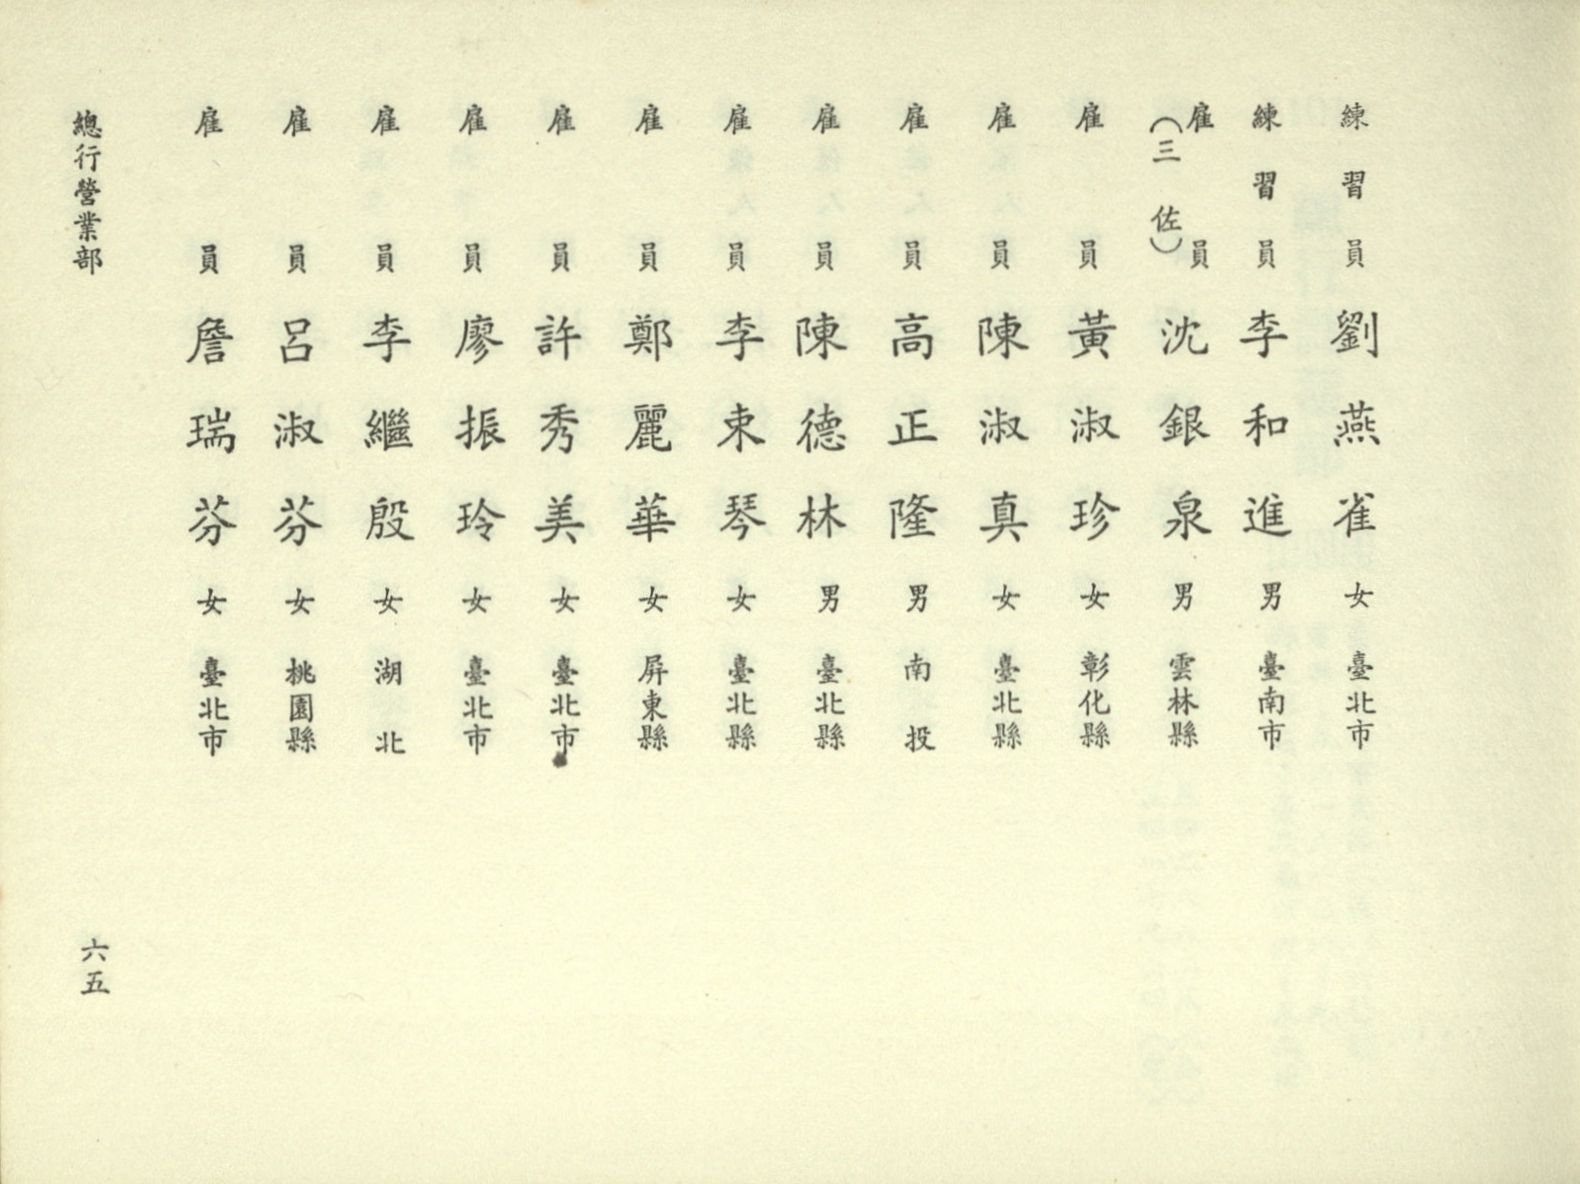 練習員劉燕雀女臺北市
練習員李和進男臺南市
雇員(三佐)沈銀泉男雲林縣
雇員黃淑珍女彰化縣
雇員陳淑真女臺北縣
雇員高正隆男南投
雇員陳德林男臺北縣
雇員李束琴女臺北縣
雇員鄭麗華女屏東縣
雇員許秀美女臺北市
雇員廖振玲女臺北市
雇員李繼殷女湖北
雇員呂淑芬女桃園縣
雇員詹瑞芬女臺北市
總行營業部
六五